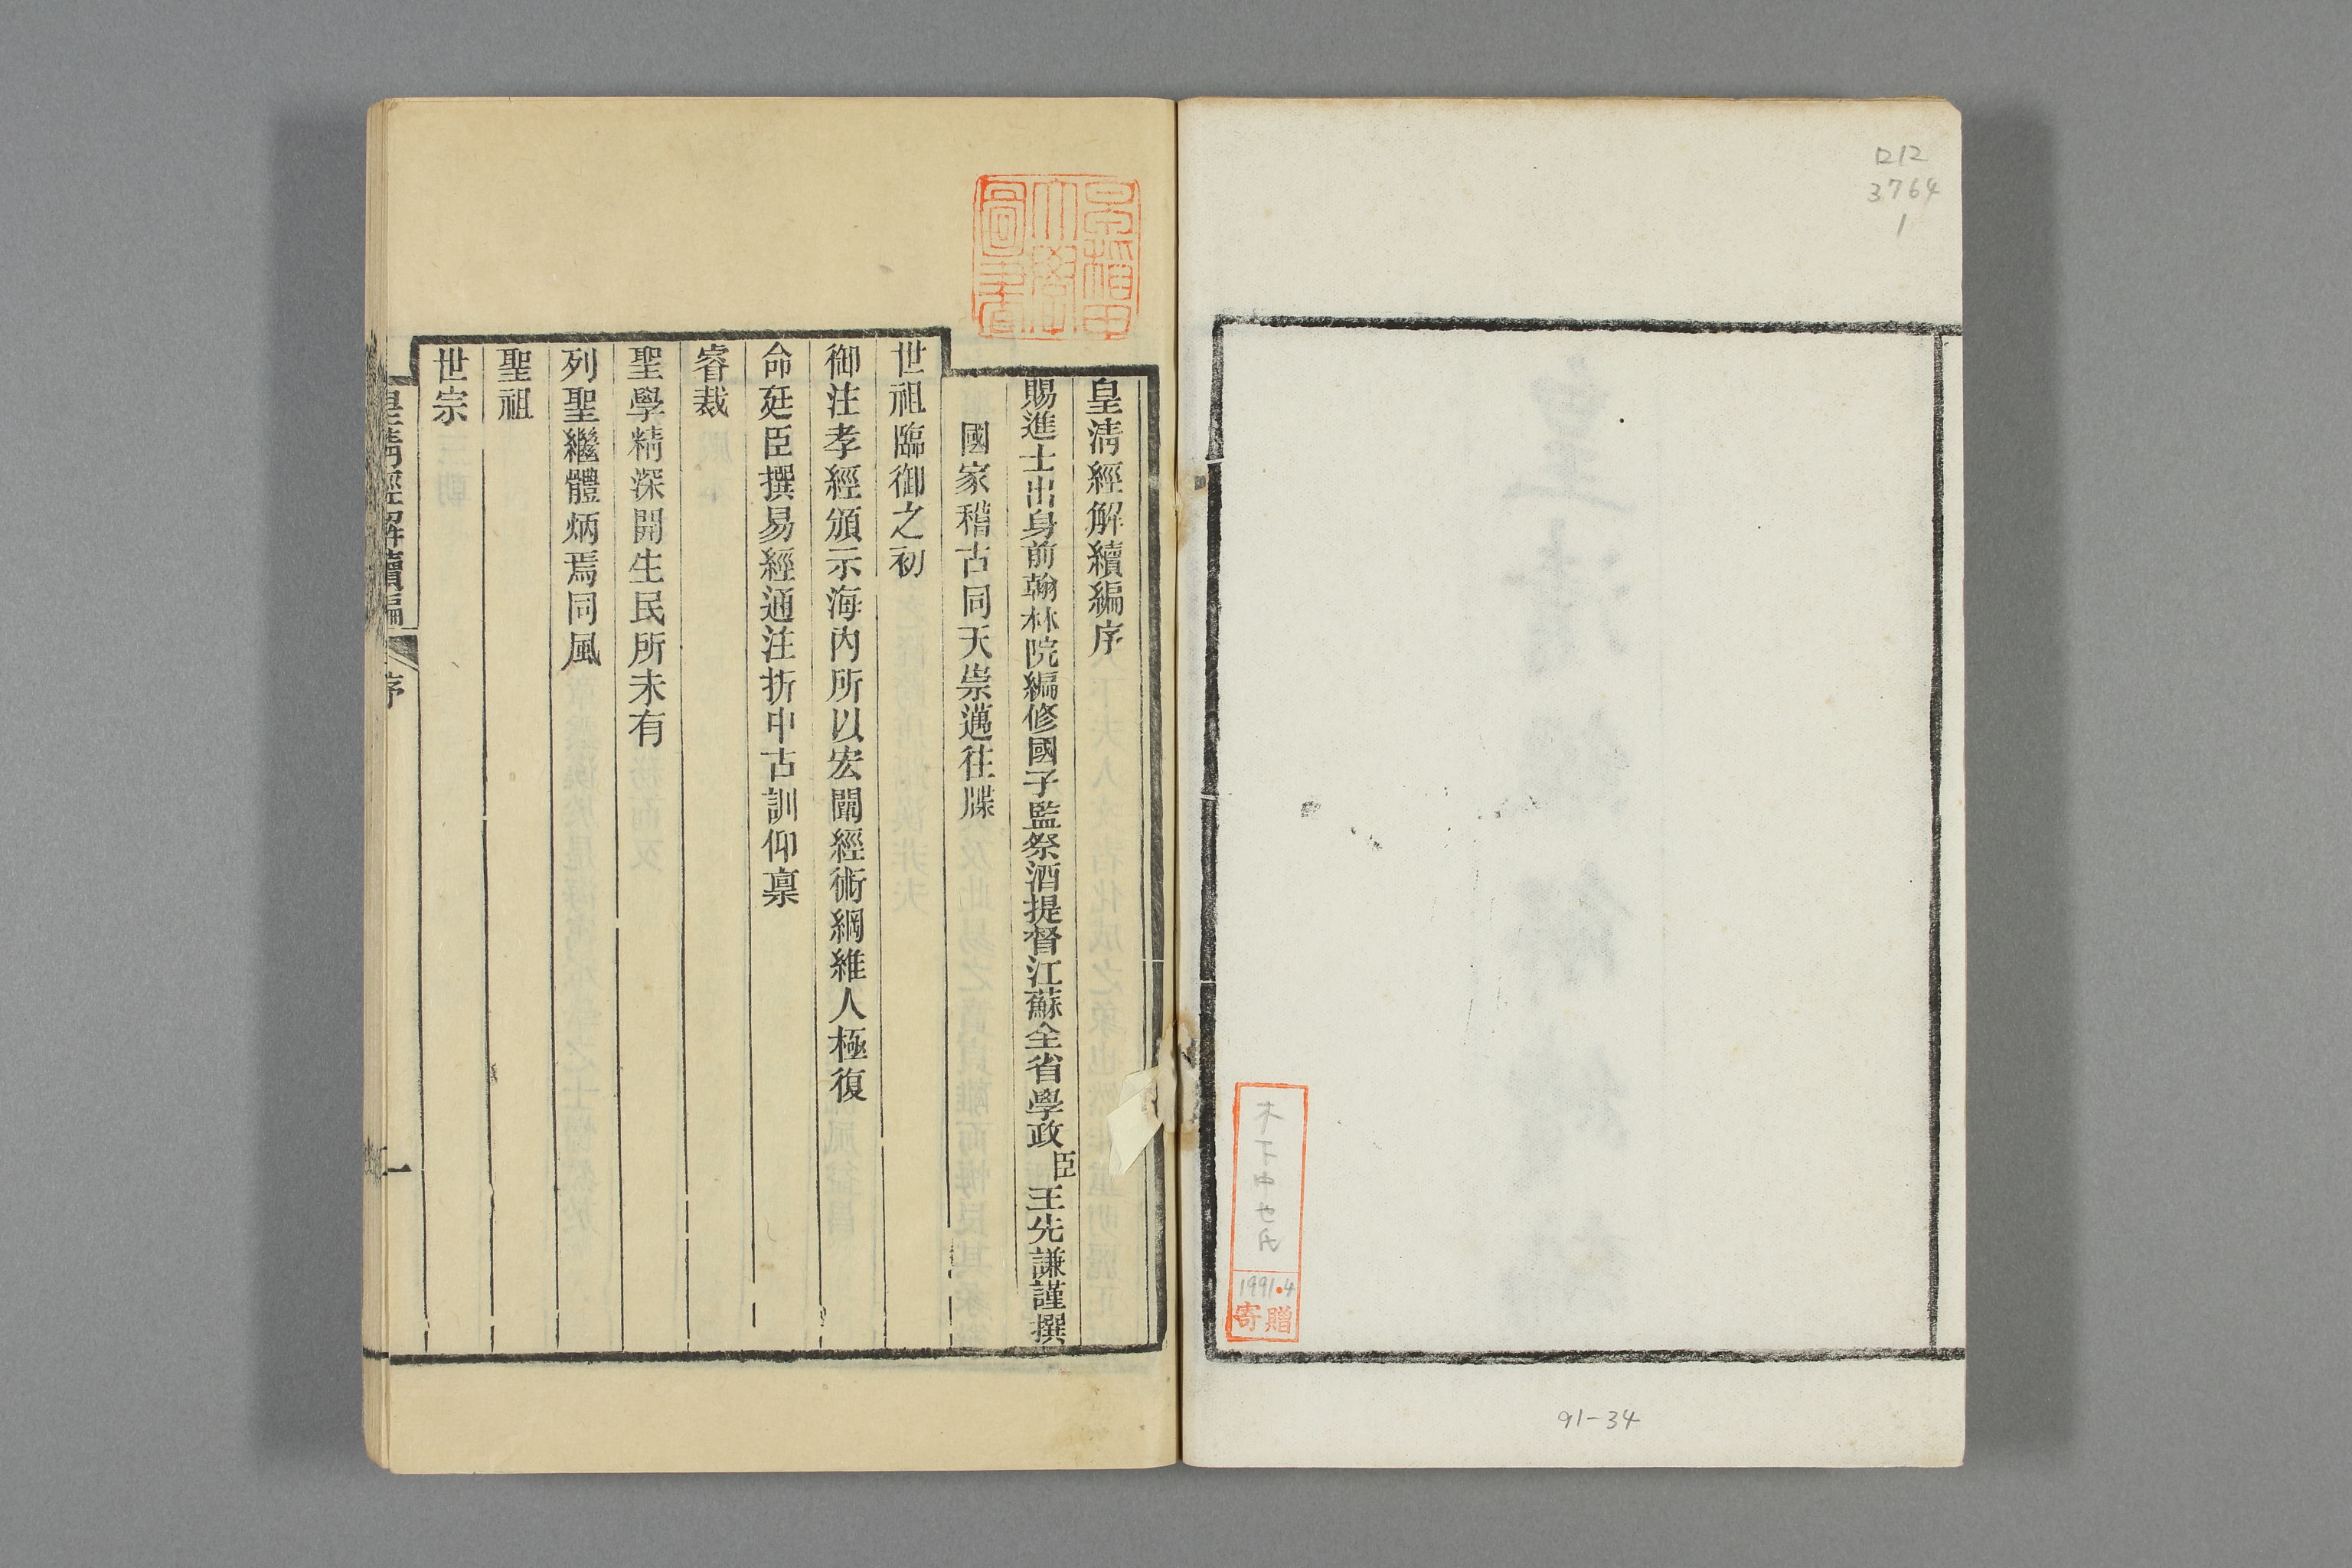 ロ12
3764
1
木下中也氏
1991.4
寄贈
91-34
早稲田
大學
圖書
皇清經解續編序
賜進士出身前翰林院編修國子監祭酒提督江蘇全省學政臣王先謙謹撰
國家稽古同天崇邁往牒
世祖臨御之初
御注孝經頒示海內所以宏闡經術綱維人極復
命廷臣撰易經通注折中古訓仰稟
睿裁
聖學精深開生民所未有
列聖繼體炳焉同風
聖祖
世宗
皇清經解續編 序 一